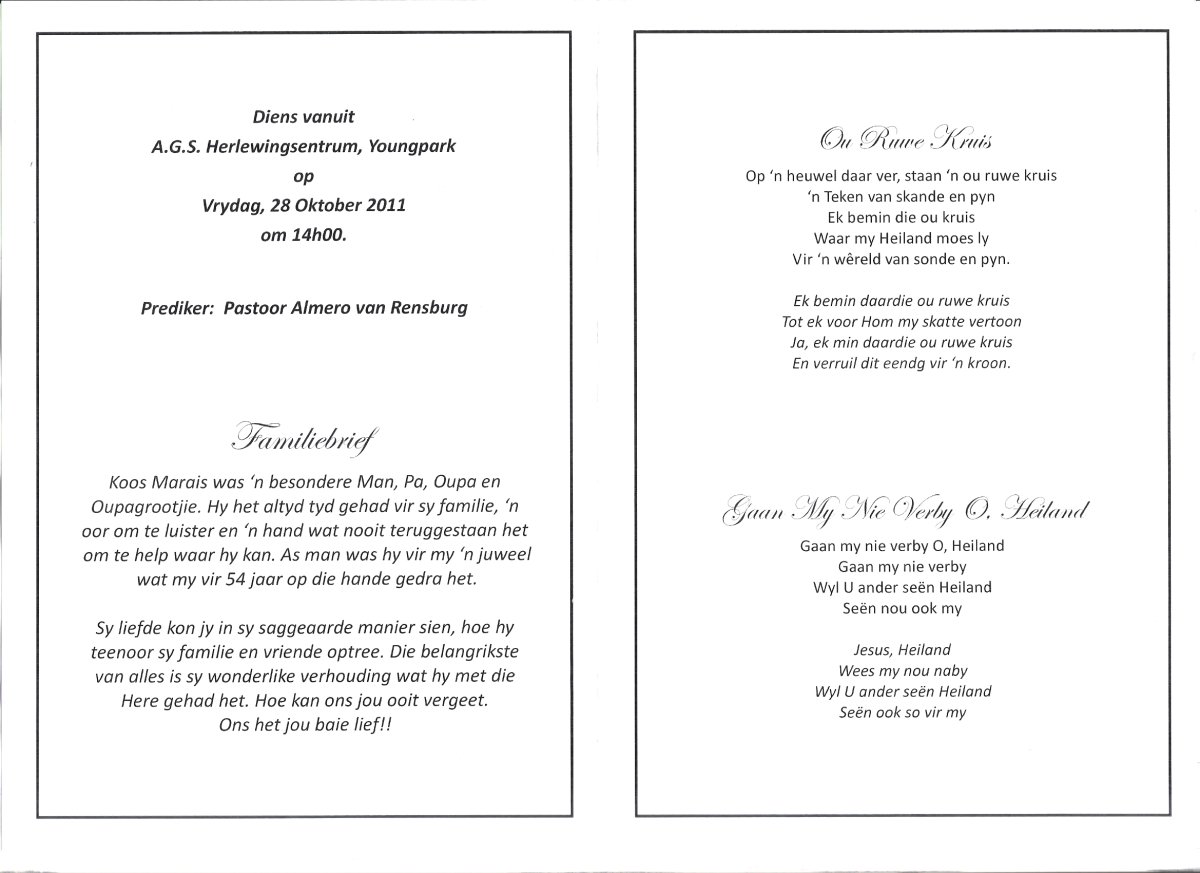 Diens vanuit
A.G.S. Herlewingsentrum, Youngpark
op
Vrydag, 28 Oktober 2011
om 14h00.
Prediker: Pastoor Almero van Rensburg
Familiebrief
Koos Marais was ‘n besondere Man, Pa, Oupa en
Oupagrootjie. Hy het altyd tyd gehad vir sy familie, ‘n
oor om te luister en ‘n hand wat nooit teruggestaan het
om te help waar hy kan. As man was hy vir my ‘n juweel
wat my vir 54 jaar op die hande gedra het.
Sy liefde kon jy in sy saggeaarde manier sien, hoe hy
teenoor sy familie en vriende optree. Die belangrikste
van alles is sy wonderlike verhouding wat hy met die
Here gehad het. Hoe kan ons jou ooit vergeet.
Ons het jou baie lief!!
Ou Ruwe Kruis
Op ‘n heuwel daar ver, staan ‘n ou ruwe kruis
‘n Teken van skande en pyn
Ek bemin die ou kruis
Waar my Heiland moes ly
Vir ‘n wêreld van sonde en pyn.
Ek bemin daardie ou ruwe kruis
Tot ek voor Hom my skatte vertoon
Ja, ek min daardie ou ruwe kruis
En verruil dit eendg vir ‘n kroon.
Gaan My Nie Verby O. Heiland
Gaan my nie verby O, Heiland
Gaan my nie verby
Wyl U ander seën Heiland
Seën nou ook my
Jesus, Heiland
Wees my nou naby
Wyl U ander seën Heiland
Seën ook so vir my